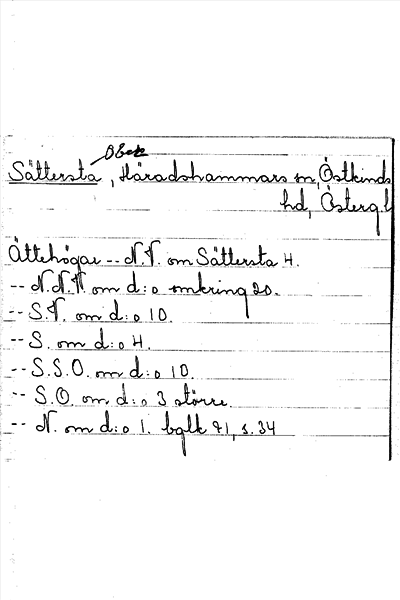 Obek
Sättersta, Häradshammars sn, Östkinds
hd, Östergl
Ättehögar -- N.V. om Sättersta 4.
-- N.N.V om d:o omkring 20.
-- S.V. om d:o 10.
-- S. om d:o 4.
-- S.S.O. om d:o 10.
-- S.O. om d:o 3 större.
-- N. om d:o 1. bglk 71, s. 34